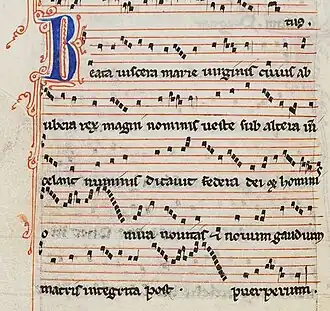 tus.
Beata viscera marie virginis cuius ab
ubera rex magni nominis veste sub altera
celans numinis dictavit federa dei et homini
o mira novitas et novum gaudium
matris integrita post puerperium.